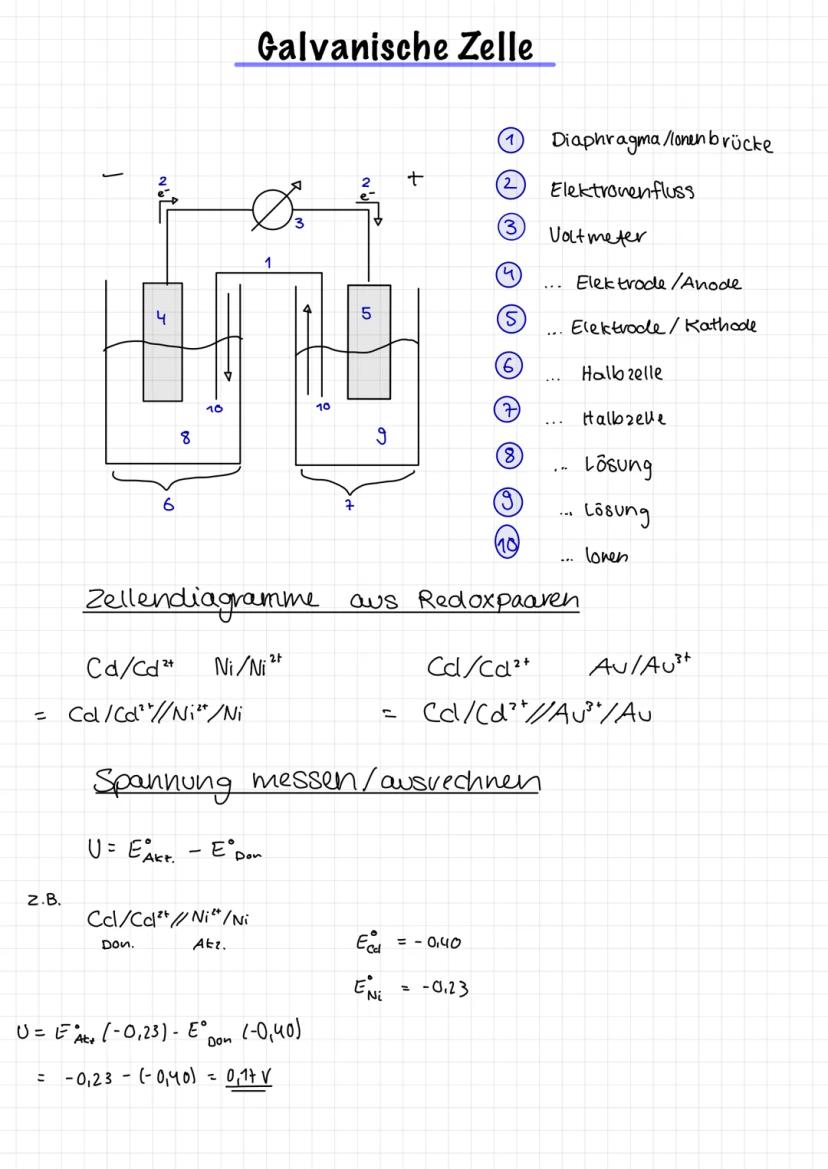 Galvanische Zelle
① Diaphragma/Ionenbrücke
② Elektronenfluss
③ Voltmeter
④ ... Elektrode/Anode
⑤ ... Elektrode/Kathode
⑥ ... Halbzelle
⑦ ... Halbzelle
⑧ ... Lösung
⑨ ... Lösung
⑩ ... Ionen
− 2 2 +
e⁻ e⁻
3
1
4 5
10 10
8 9
6 7
Zellendiagramme aus Redoxpaaren
Cd/Cd²⁺ Ni/Ni²⁺ Cd/Cd²⁺ Au/Au³⁺
= Cd/Cd²⁺//Ni²⁺/Ni = Cd/Cd²⁺//Au³⁺/Au
Spannung messen/ausrechnen
U = E°Akz. − E°Don
z.B.
Cd/Cd²⁺//Ni²⁺/Ni
Don. Akz.
E°Cd = -0,40
E°Ni = -0,23
U = E°Akz (-0,23) - E°Don (-0,40)
= -0,23 - (-0,40) = 0,17 V